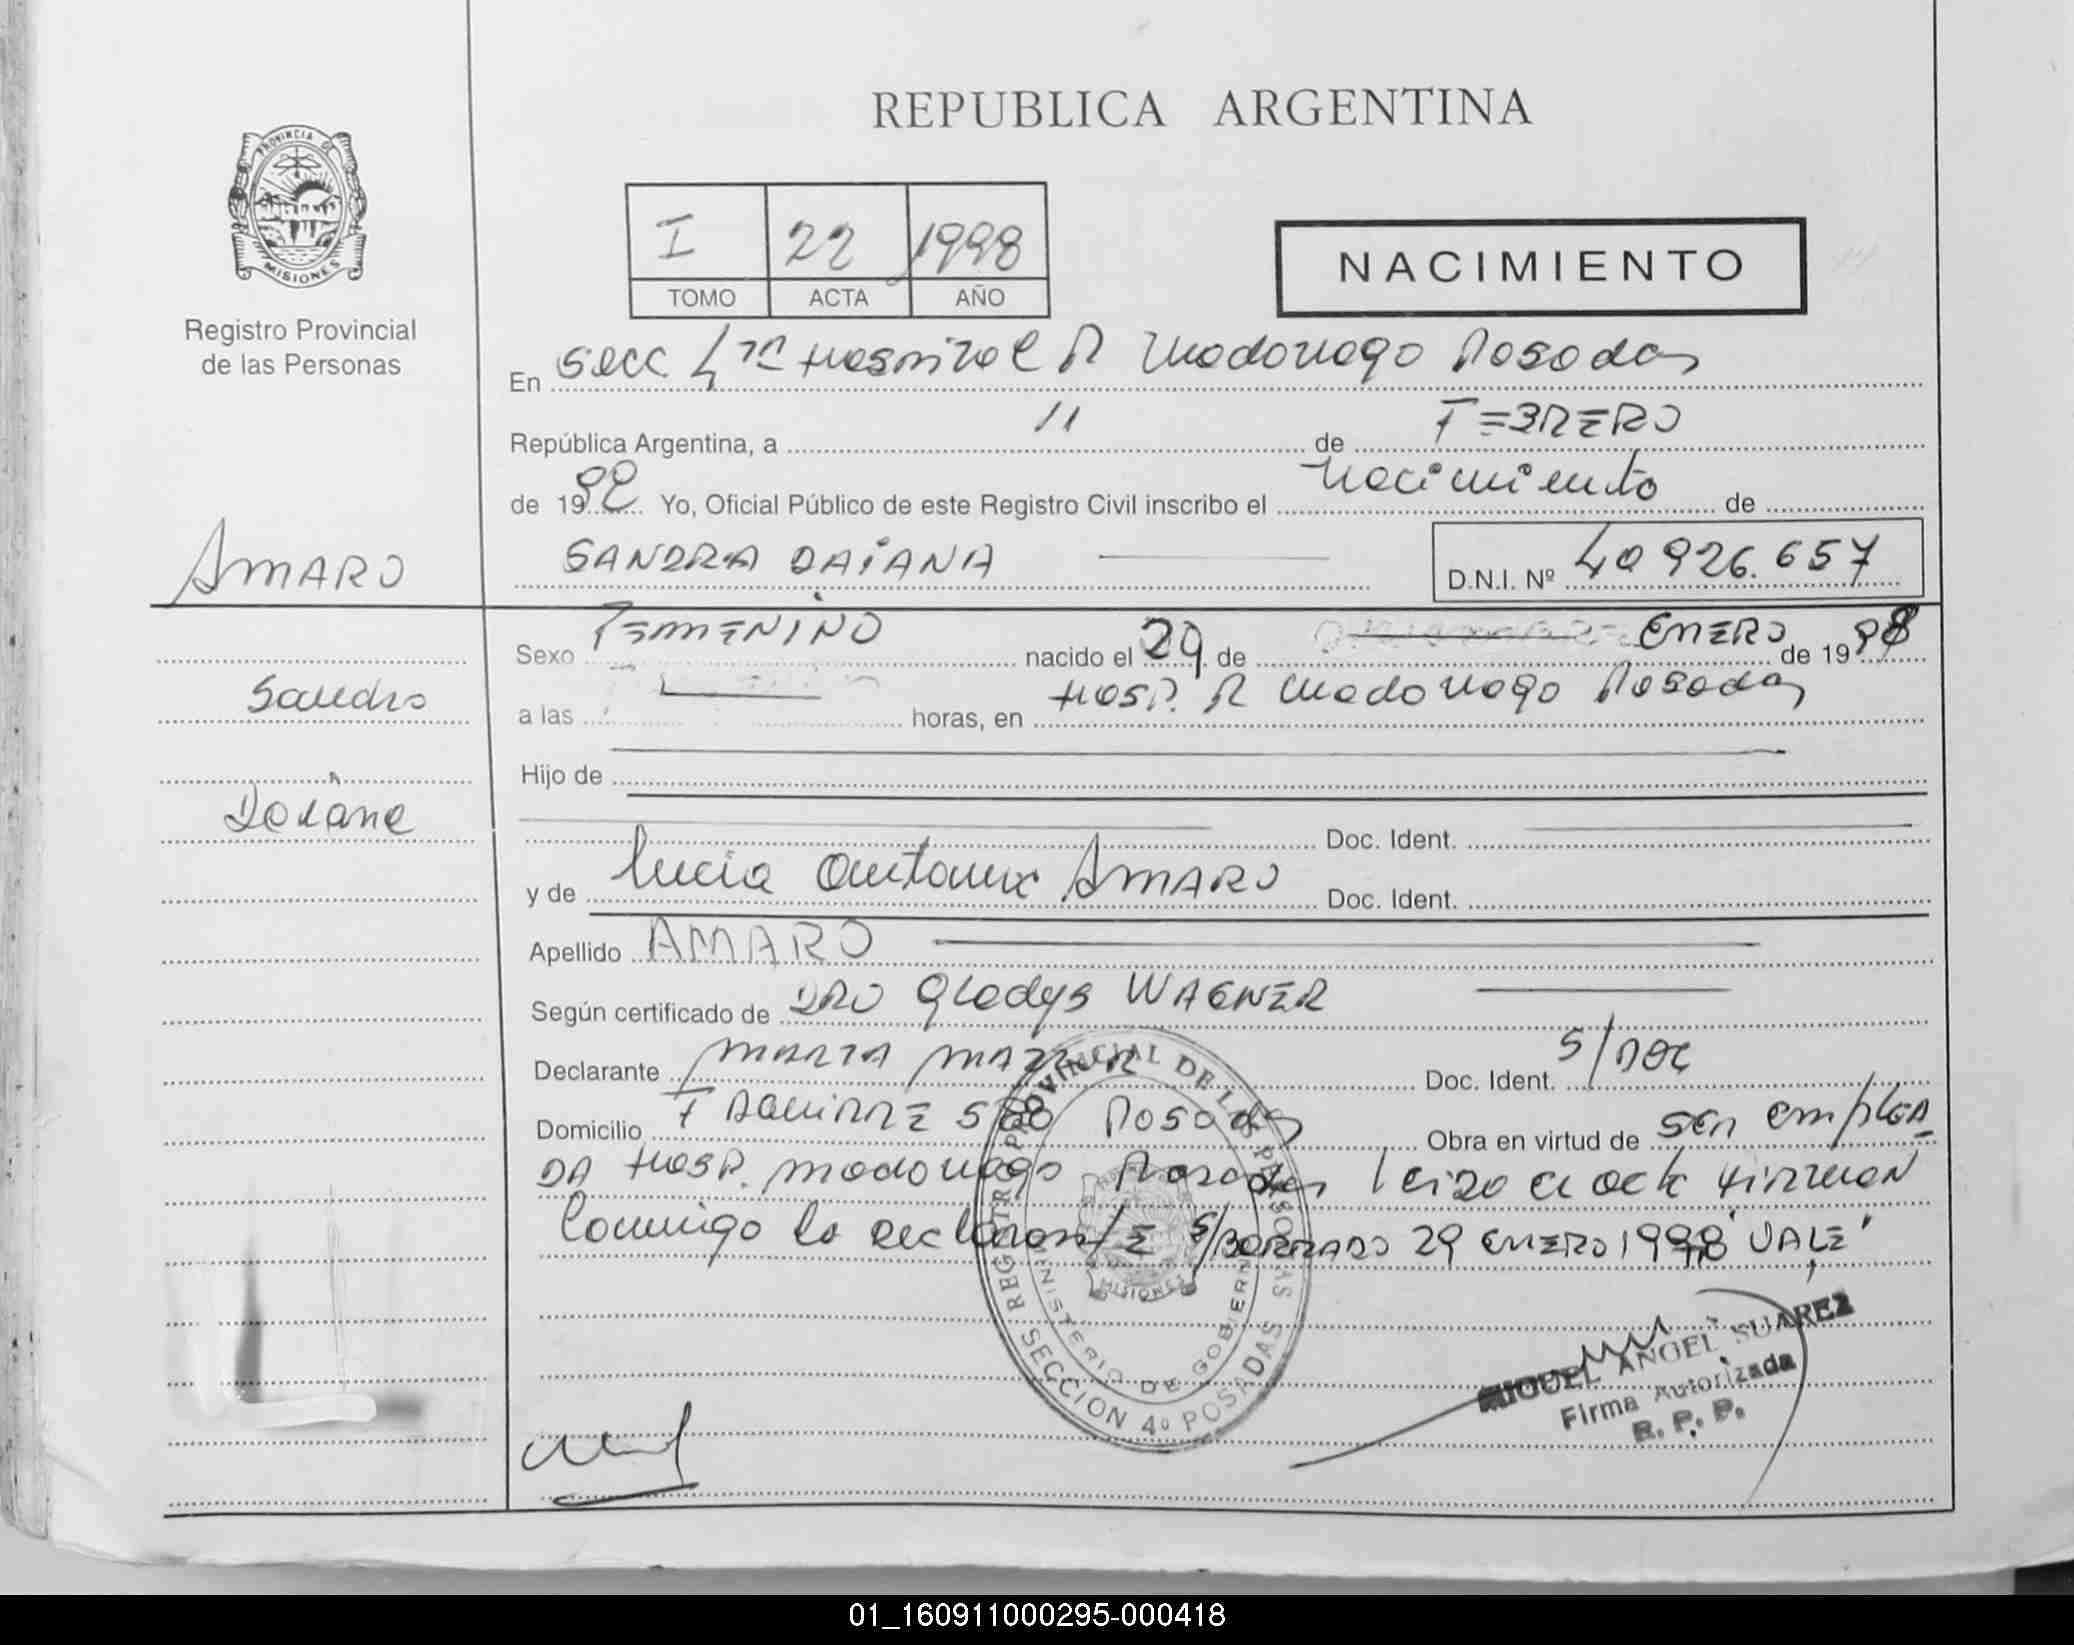 REPUBLICA ARGENTINA
PROVINCIA DE
MISIONES
Registro Provincial
de las Personas
I 22 1998
TOMO ACTA AÑO
NACIMIENTO
En Secc 4ta Hospital R Madariaga Posadas
República Argentina, a 11 de FEBRERO
de 1998 Yo, Oficial Público de este Registro Civil inscribo el nacimiento de
SANDRA DAIANA
D.N.I. Nº 40 926.657
AMARO
Sandra
Daiana
Sexo FEMENINO nacido el 29 de ENERO de 1998
a las horas, en HOSP. R Madariaga Posadas
Hijo de
Doc. Ident.
y de Lucia AMARO Doc. Ident.
Apellido AMARO
Según certificado de DRA Gladys WAGNER
Declarante MARTA Doc. Ident. S/DOC
Domicilio F AGUIRRE 580 Posadas Obra en virtud de ser EMPLEA
DA HOSP. Madariaga Posadas leida el acta firman
conmigo la declarante S/BORRADO 29 ENERO 1998 "VALE"
REGISTRO PROVINCIAL DE LAS PERSONAS
MINISTERIO DE GOBIERNO
MISIONES
SECCION 4º POSADAS
MIGUEL ANGEL SUAREZ
Firma Autorizada
R. P. P.
01_160911000295-000418